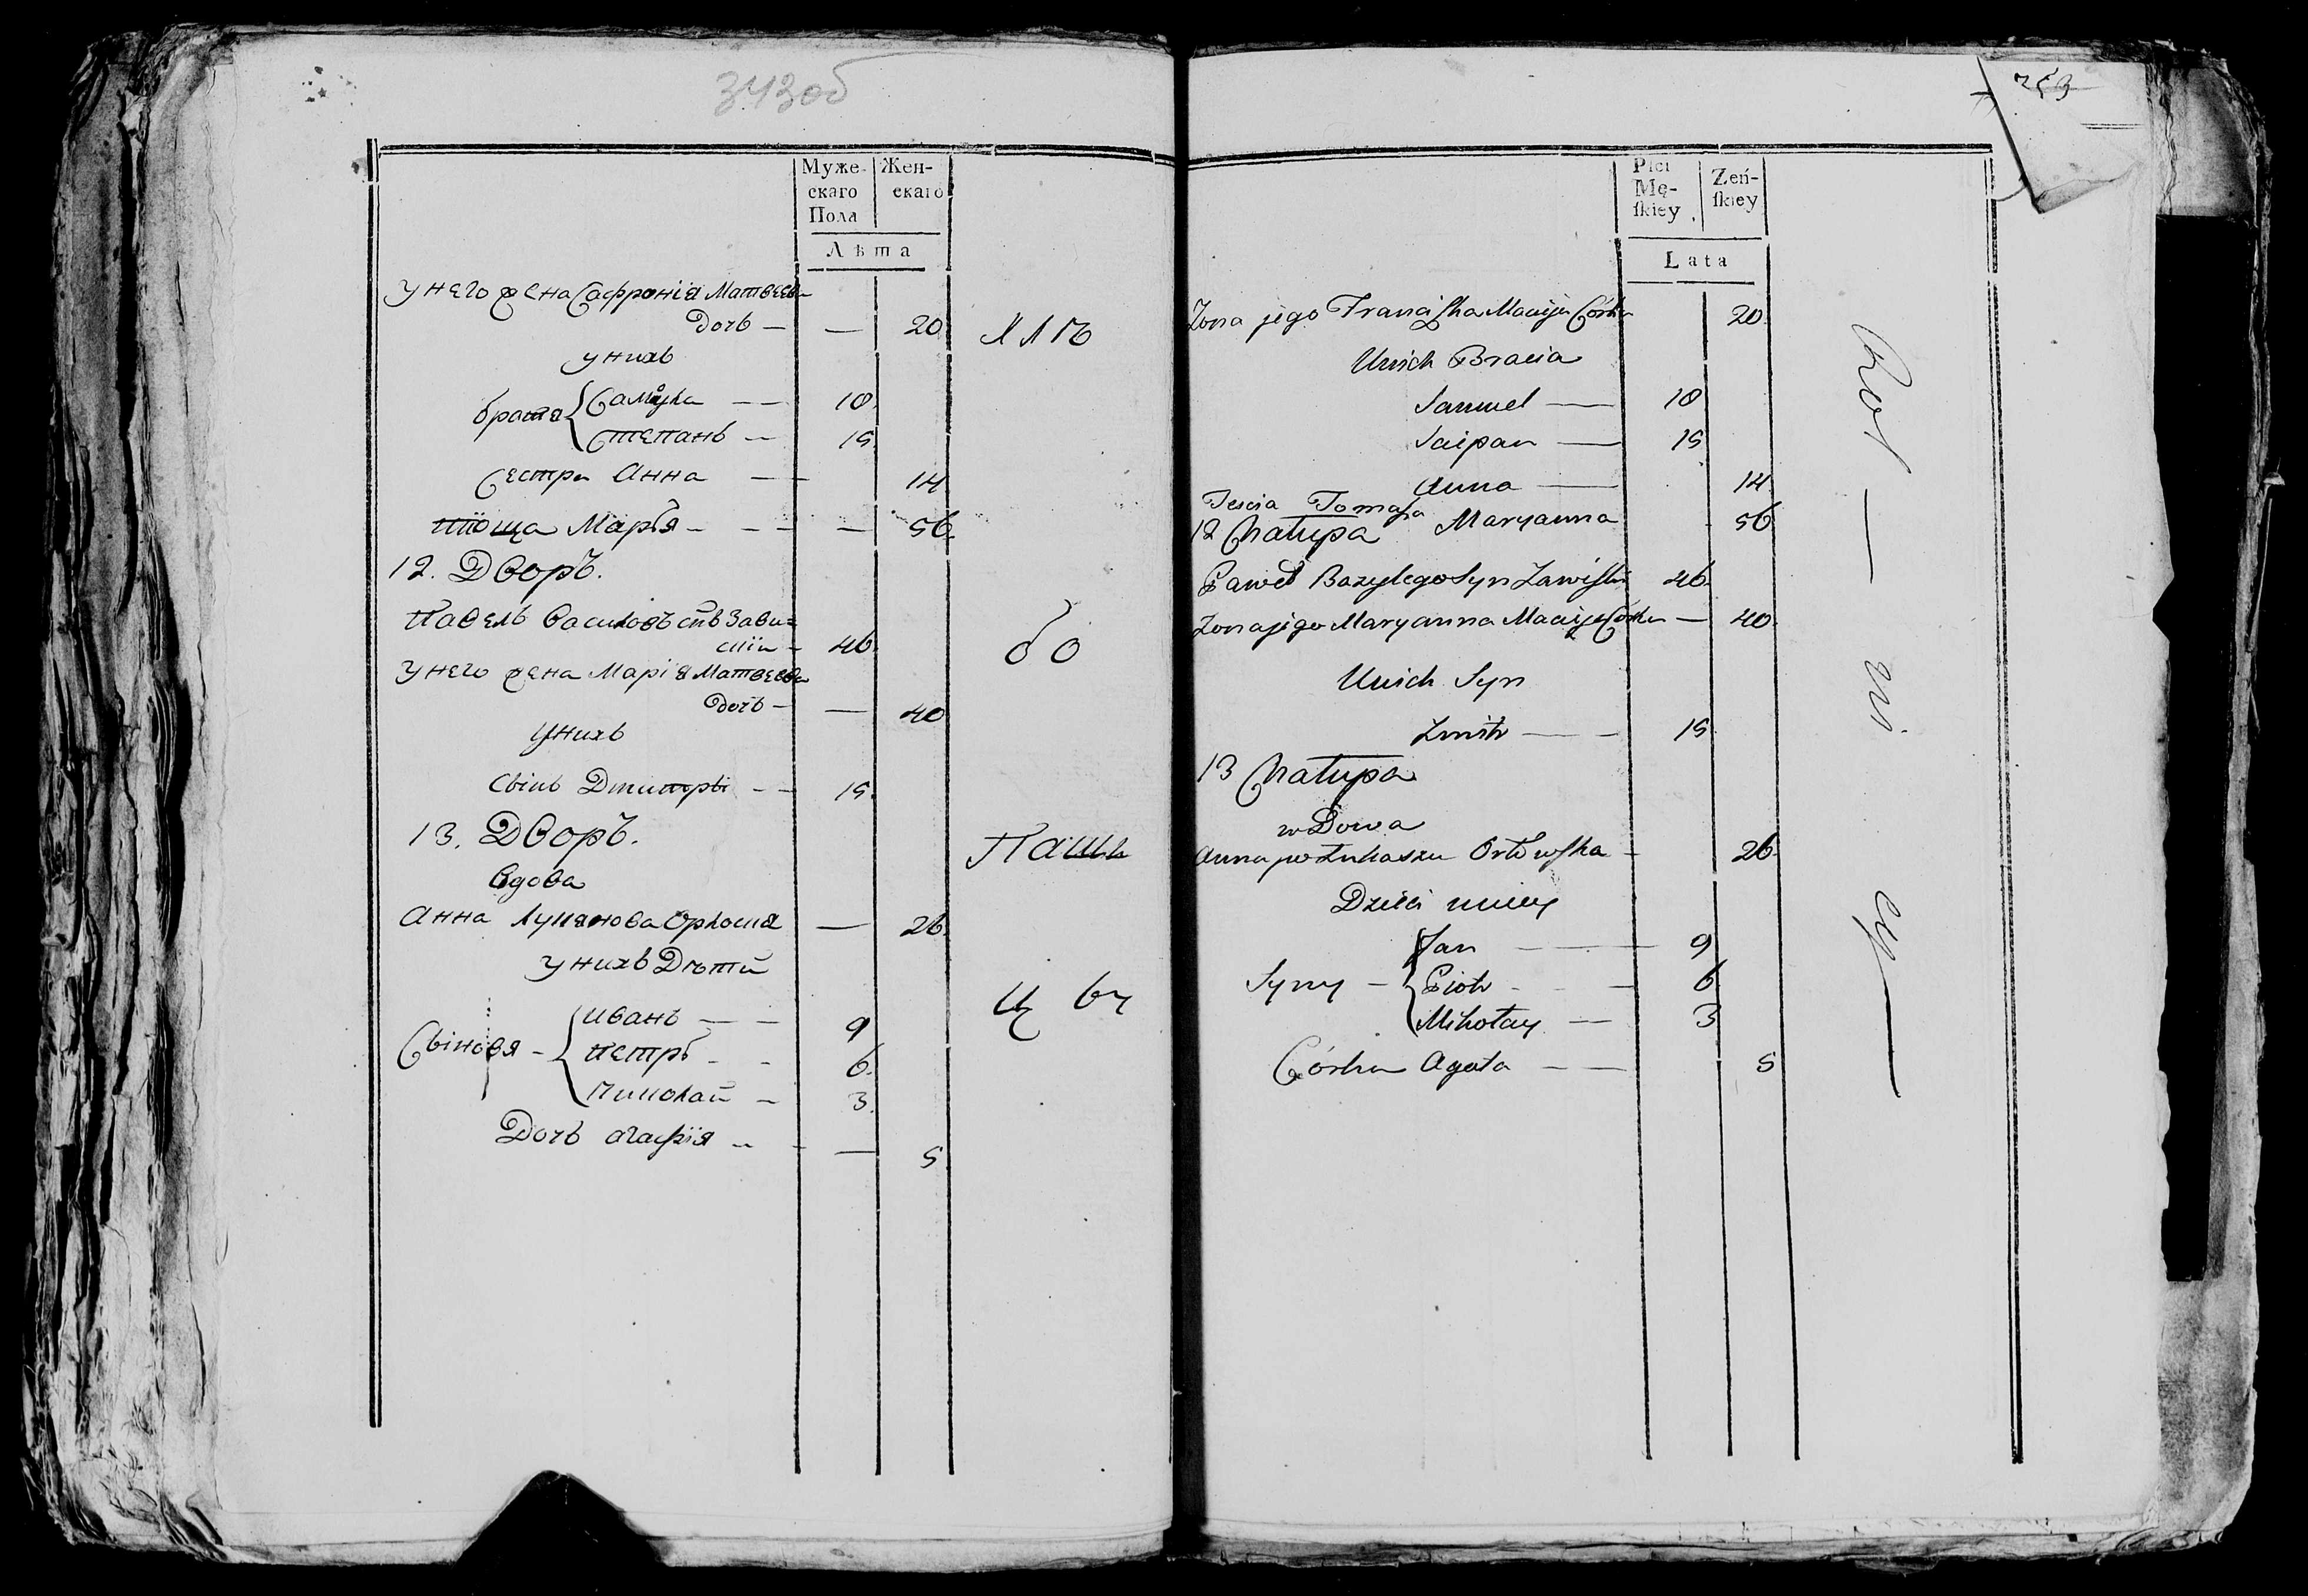 343об
Муже- Жен-
скаго скаго
Пола
Лѣта
у него жена Сафронія Матвеева
дочь — — 20
ХЛѢ
у нихъ
братя { Самуйла — 18.
Степанъ — 15.
Сестра Анна — 14.
тіоща Марья — — — 56.
12. Дворъ.
Павелъ Василовъ снъ Зави=
сшіи — 46.
бо
у него жена Марія Матвеева
дочь — — 40
у нихъ
Сынъ Дмитры — 15.
13. Дворъ.
Вдова
Паши
Анна Лукянова Орлосшя — 26.
у нихъ Дѣти
Иванъ — 9
Сыновя — { Петръ — 6.
Николай — 3.
Дочь агафія — — 5
Płci
Mę- Żeń-
skiey skiey
Lata
Żona jego Franciszka Macieja Córka 20.
Unich Bracia
Samuel — 18
Sciepan — 15
Anna — 14.
Teścia Tomasza Maryanna 56
12 Chałupa
Paweł Bazylego Syn Zawiski 46.
Żona jego Maryanna Macieja Córka — 40.
Unich Syn
Zmitr — 15
13 Chałupa
wDowa
Anna po Łukaszu Orłowska — 26.
Dzieci uniey
Jan — 9
Syny — { Piotr — 6
Mikołay — 3
Córka Agata — 5